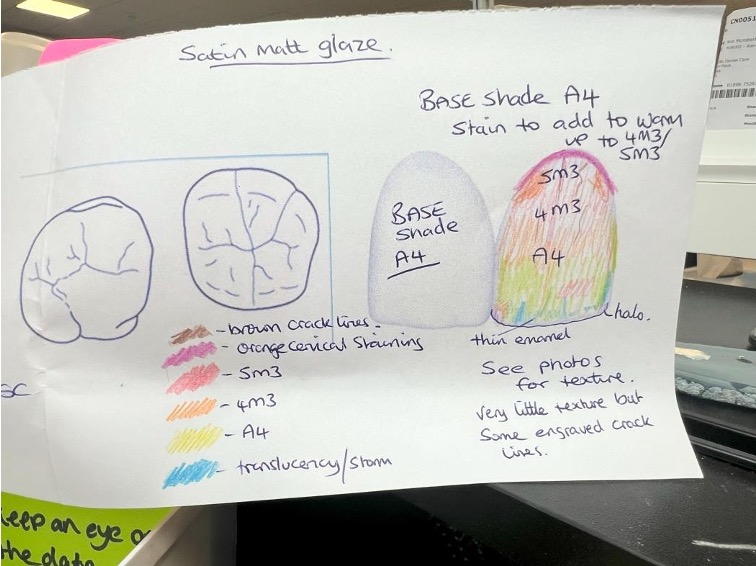 Satin matt glaze.
BASE shade A4
Stain to add to warm
up to 4M3/
5M3
BASE
shade
A4
5m3
4m3
A4
halo.
thin enamel
- brown crack lines.
- orange cervical staining
- 5m3
- 4m3
- A4
- translucency/storm
See photos
for texture.
Very little texture but
Some engraved crack
lines.
SC
keep an eye o
the data
CN0051